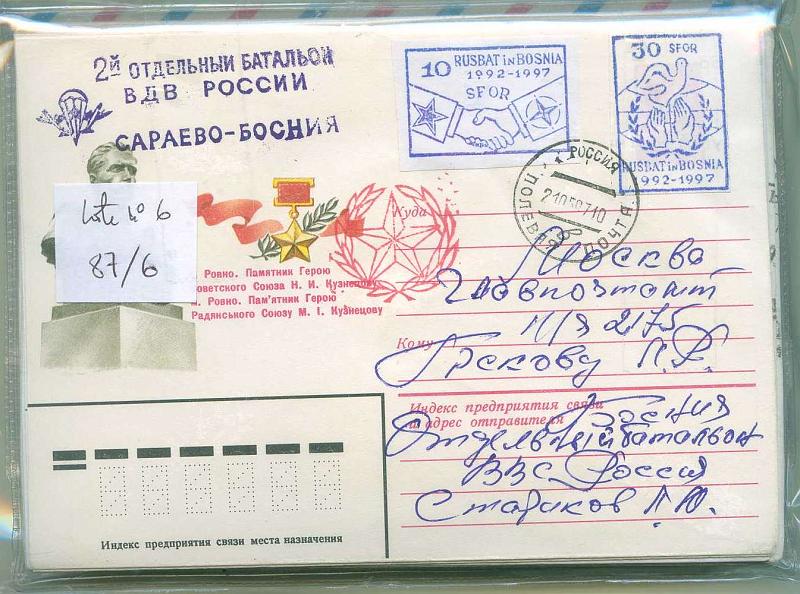 2й ОТДЕЛЬНЫЙ БАТАЛЬОН
ВДВ РОССИИ
САРАЕВО-БОСНИЯ
10 RUSBAT iN BOSNIA
1992-1997
SFOR
30 SFOR
RUSBAT iN BOSNIA
1992-1997
РОССИЯ
ПОЧТА
ПОЛЕВАЯ
Lote nº 6
87/6
Ровно. Памятник Герою
Советского Союза Н. И. Кузнецову
. Ровно. Пам'ятник Герою
Радянського Союзу М. І. Кузнецову
Куда
Москва
Главпочтамт
п/я 2175
Кому
Грекову
Индекс предприятия связи
и адрес отправителя
Босния
Отдельный батальон
ВВС Россия
Стариков Л. Ю.
Индекс предприятия связи места назначения